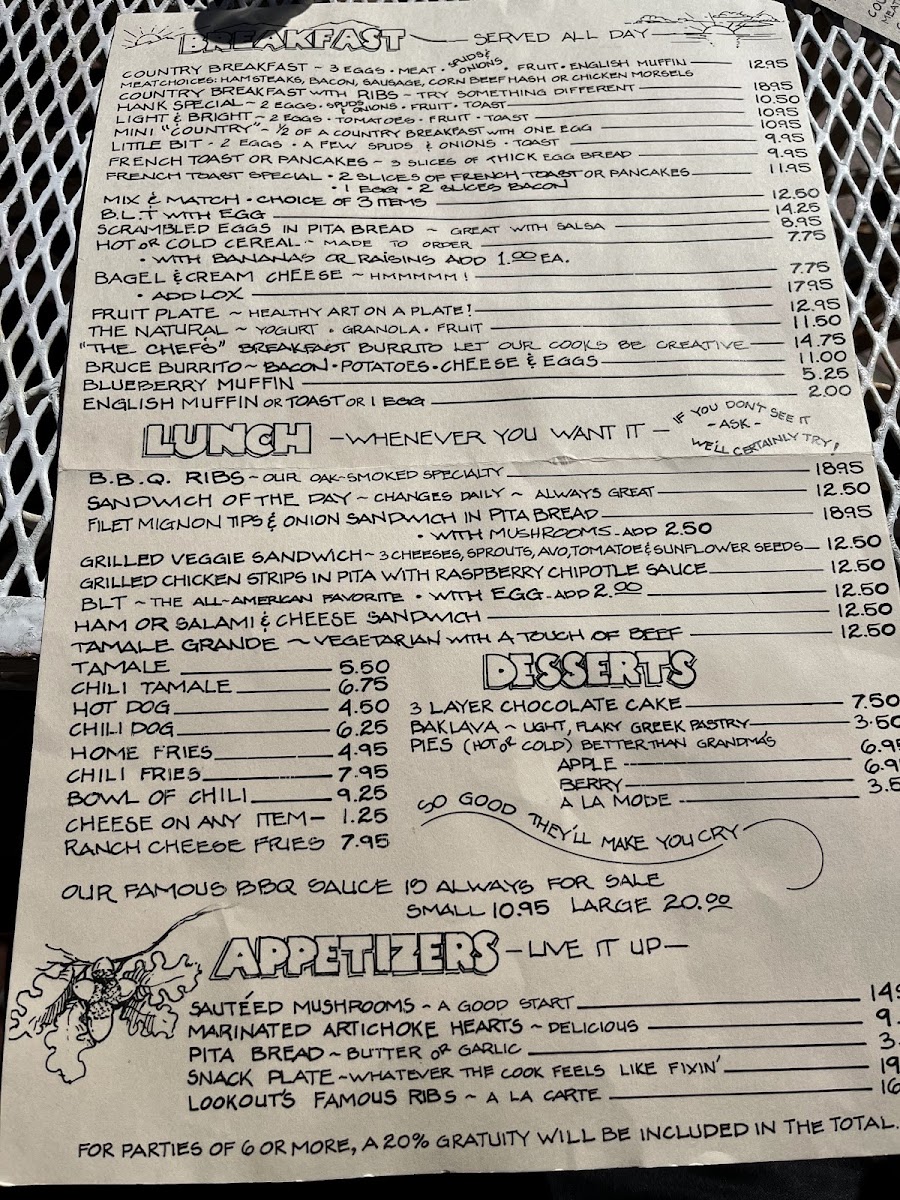 BREAKFAST — SERVED ALL DAY —
COUNTRY BREAKFAST ~ 3 EGGS · MEAT · SPUDS & ONIONS · FRUIT · ENGLISH MUFFIN — 12.95
MEAT CHOICES: HAM STEAKS, BACON, SAUSAGE, CORN BEEF HASH OR CHICKEN MORSELS
COUNTRY BREAKFAST WITH RIBS ~ TRY SOMETHING DIFFERENT — 18.95
HANK SPECIAL ~ 2 EGGS · SPUDS & ONIONS · FRUIT · TOAST — 10.50
LIGHT & BRIGHT ~ 2 EGGS · TOMATOES · FRUIT · TOAST — 10.95
MINI "COUNTRY" ~ ½ OF A COUNTRY BREAKFAST WITH ONE EGG — 10.95
LITTLE BIT · 2 EGGS · A FEW SPUDS & ONIONS · TOAST — 9.95
FRENCH TOAST OR PANCAKES ~ 3 SLICES OF THICK EGG BREAD — 9.95
FRENCH TOAST SPECIAL · 2 SLICES OF FRENCH TOAST OR PANCAKES — 11.95
· 1 EGG · 2 SLICES BACON
MIX & MATCH · CHOICE OF 3 ITEMS — 12.50
B.L.T WITH EGG — 14.25
SCRAMBLED EGGS IN PITA BREAD ~ GREAT WITH SALSA — 8.95
HOT OR COLD CEREAL ~ MADE TO ORDER — 7.75
· WITH BANANAS OR RAISINS ADD 1.00 EA.
BAGEL & CREAM CHEESE ~ HMMMMM! — 7.75
· ADD LOX — 17.95
FRUIT PLATE ~ HEALTHY ART ON A PLATE! — 12.95
THE NATURAL ~ YOGURT · GRANOLA · FRUIT — 11.50
"THE CHEF'S" BREAKFAST BURRITO LET OUR COOKS BE CREATIVE — 14.75
BRUCE BURRITO ~ BACON · POTATOES · CHEESE & EGGS — 11.00
BLUEBERRY MUFFIN — 5.25
ENGLISH MUFFIN OR TOAST OR 1 EGG — 2.00
LUNCH — WHENEVER YOU WANT IT —
IF YOU DON'T SEE IT
- ASK -
WE'LL CERTAINLY TRY!
B.B.Q. RIBS ~ OUR OAK-SMOKED SPECIALTY — 18.95
SANDWICH OF THE DAY ~ CHANGES DAILY ~ ALWAYS GREAT — 12.50
FILET MIGNON TIPS & ONION SANDWICH IN PITA BREAD — 18.95
· WITH MUSHROOMS - ADD 2.50
GRILLED VEGGIE SANDWICH ~ 3 CHEESES, SPROUTS, AVO, TOMATOE & SUNFLOWER SEEDS — 12.50
GRILLED CHICKEN STRIPS IN PITA WITH RASPBERRY CHIPOTLE SAUCE — 12.50
BLT ~ THE ALL-AMERICAN FAVORITE · WITH EGG - ADD 2.00 — 12.50
HAM OR SALAMI & CHEESE SANDWICH — 12.50
TAMALE GRANDE ~ VEGETARIAN WITH A TOUCH OF BEEF — 12.50
TAMALE — 5.50
CHILI TAMALE — 6.75
HOT DOG — 4.50
CHILI DOG — 6.25
HOME FRIES — 4.95
CHILI FRIES — 7.95
BOWL OF CHILI — 9.25
CHEESE ON ANY ITEM — 1.25
RANCH CHEESE FRIES 7.95
DESSERTS
3 LAYER CHOCOLATE CAKE — 7.50
BAKLAVA ~ LIGHT, FLAKY GREEK PASTRY — 3.50
PIES (HOT OR COLD) BETTER THAN GRANDMA'S
APPLE — 6.95
BERRY — 6.9
A LA MODE — 3.5
SO GOOD THEY'LL MAKE YOU CRY
OUR FAMOUS BBQ SAUCE IS ALWAYS FOR SALE
SMALL 10.95 LARGE 20.00
APPETIZERS — LIVE IT UP —
SAUTÉED MUSHROOMS ~ A GOOD START — 14
MARINATED ARTICHOKE HEARTS ~ DELICIOUS — 9.
PITA BREAD ~ BUTTER OR GARLIC — 3.
SNACK PLATE ~ WHATEVER THE COOK FEELS LIKE FIXIN' — 19
LOOKOUT'S FAMOUS RIBS ~ A LA CARTE — 16
FOR PARTIES OF 6 OR MORE, A 20% GRATUITY WILL BE INCLUDED IN THE TOTAL.